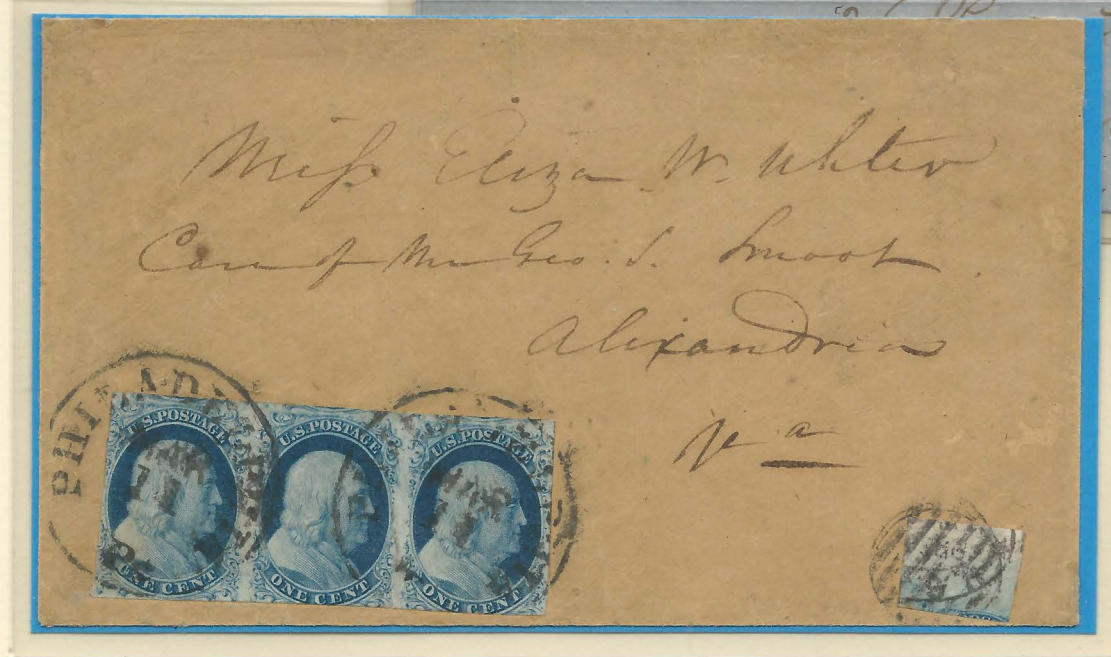 Miss Eliza W. Uhler
Care of Mr Geo. S. Smoot
Alexandria
Va
PHILADELPHIA Pa
MAR
11
U.S. POSTAGE
ONE CENT
U.S. POSTAGE
ONE CENT
MAR
11
U.S. POSTAGE
ONE CENT